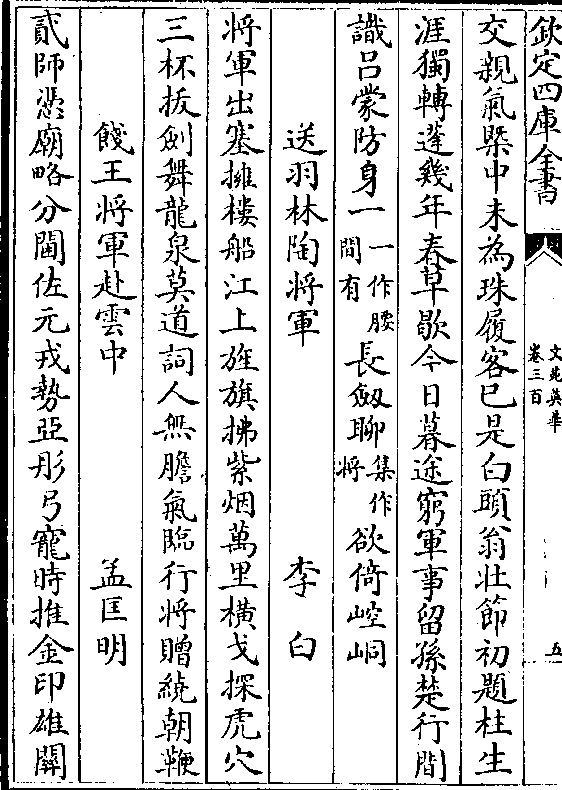 欽定四庫全書
文苑英華
卷三百
五
交親氣槩中未為珠履客已是白頭翁壯節初題柱生
涯獨轉蓬幾年春草歇今日暮途窮軍事留孫楚行間
識吕蒙防身一一作腰間有長劔聊集作將欲倚崆峒
送羽林陶將軍 李白
將軍出塞擁樓船江上旌旗拂紫烟萬里横戈探虎穴
三杯拔劍舞龍泉莫道詞人無膽氣臨行將贈繞朝鞭
餞王將軍赴雲中 孟匡明
貳師憑廟略分閫佐元戎勢亞彤弓寵時推金印雄關